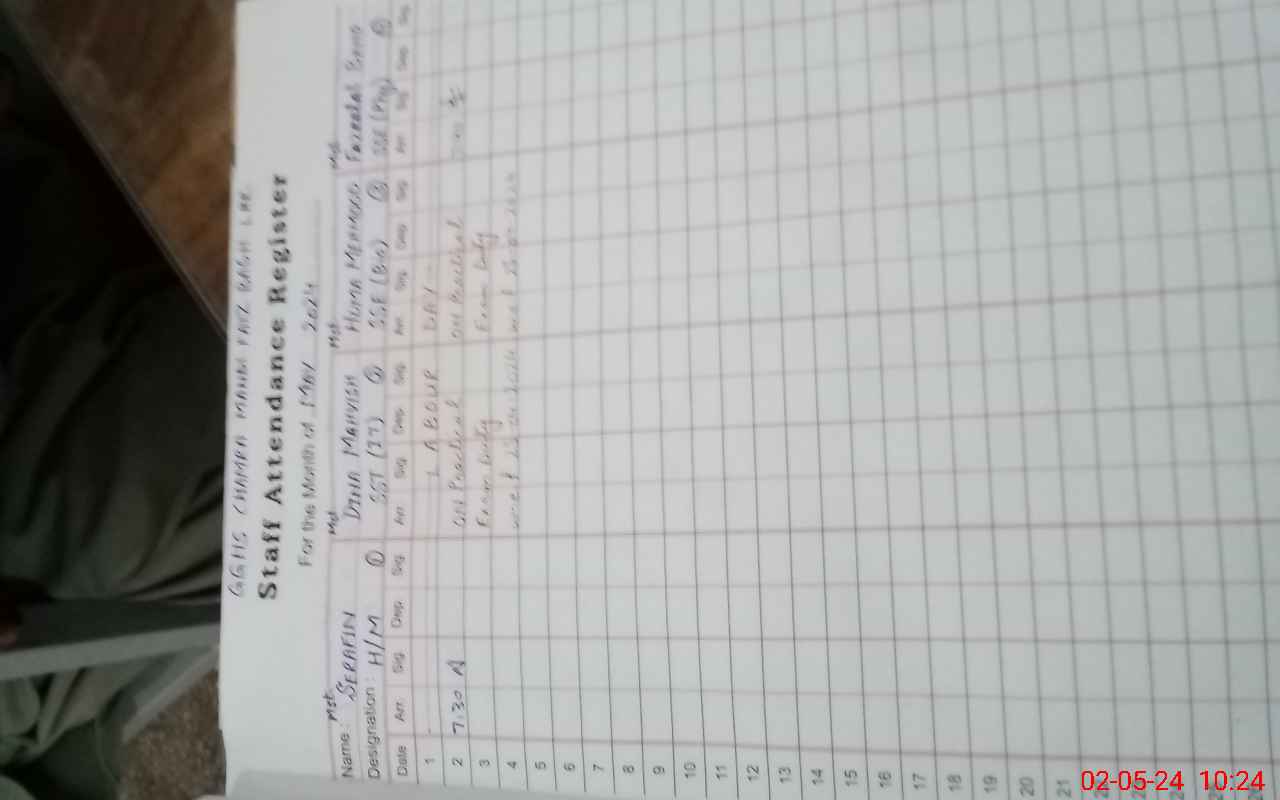 GGHS CHAMPA MANDI FAIZ BAGH LHR
Staff Attendance Register
For the Month of MAY 2024
Name: Mst. SERAFIN Mst. DINA MAHVISH Mst. HUMA MEHMOOD Mst.
Designation: H/M ① SST (IT) ② SSE (Bio) ③ SSE (Phy) ④
Date Arr. Sig. Dep. Sig. Arr. Sig. Dep. Sig. Arr. Sig. Dep. Sig. Arr. Sig. Dep. Sig.
1 LABOUR DAY
2 7:30 ON Practical ON Practical
3 Exam Duty Exam Duty
4 w.e.f w.e.f
5
6
7
8
9
10
11
12
13
14
15
16
17
18
19
20
21
22
02-05-24 10:24